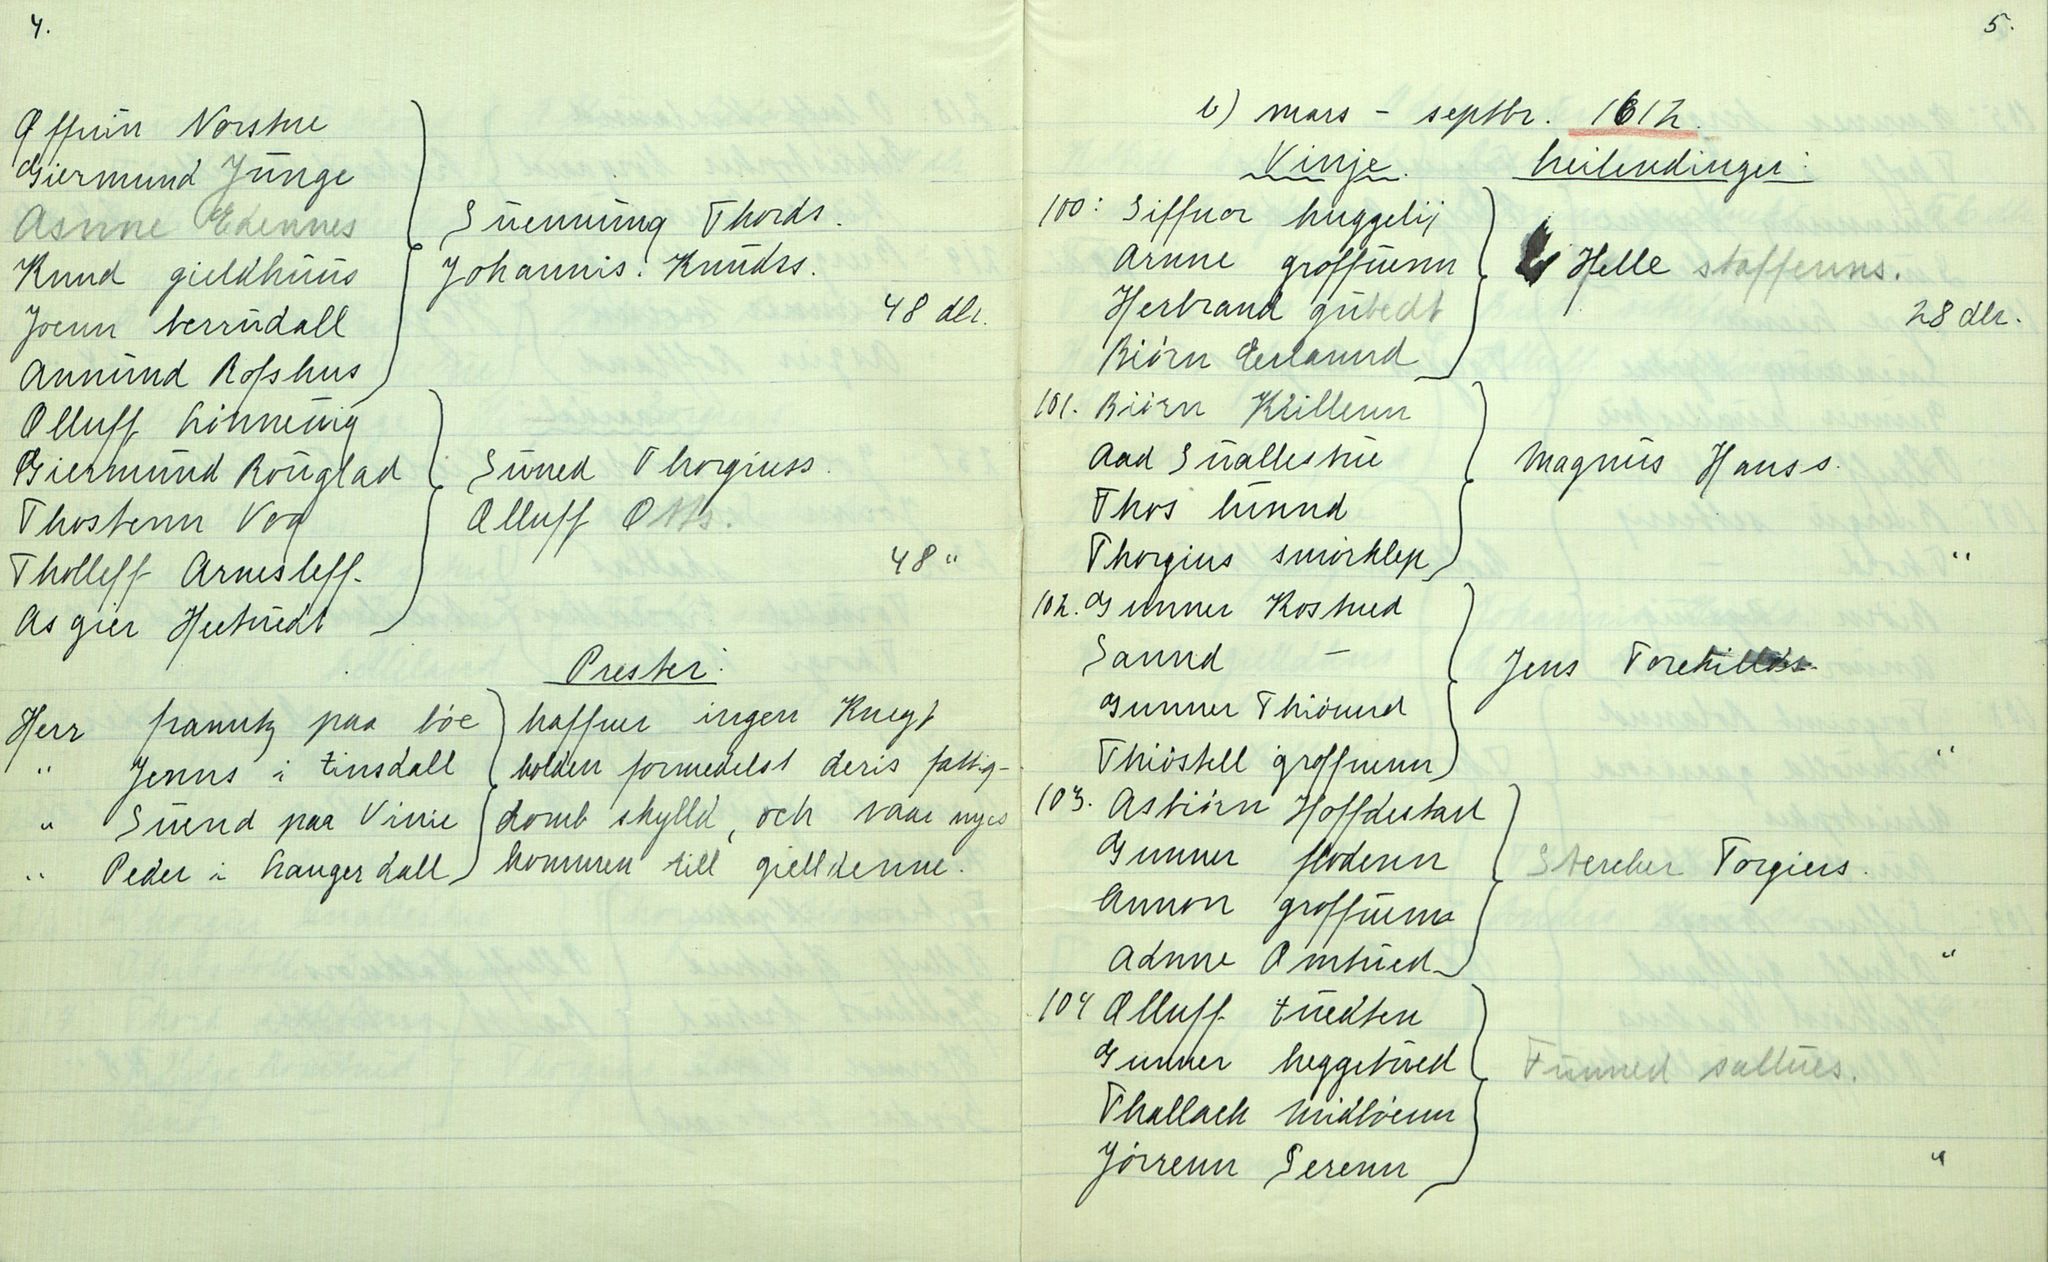 4.
Øffuin Norstue
Giermund Junge
Asnne Edennes
Knud gieldhuus
Joenn berrudall
Annund Rofshus
Suennung Thords.
Johannis. Knudss.
48 dlr.
Olluff Lönneüig
Giermund Rouglad
Thostenn Vaa
Tholleff Arnesleff
Asgier Hertuedt
Suned Thorgiuss.
Olluff Otts.
48 "
Prester:
Herr franntz paa böe
" Jenns i tinsdall
" Suend paa Vinie
" Peder i Laugerdall
haffuer ingen Knegt
holden formedelst deris fattig-
domb skylld, och vaar nyes
kommen till gielldenne.
5.
b) mars - septbr. 1612.
Vinje. heilendinger:
100: Siffuor huggelij
Arnne groffuenn
Herbrand gubedt
Biörn Eerlannd
Helle staffenns.
28 dlr.
101. Biörn Killenn
Aad Suallestue
Thos lunnd
Thorgius smörklep
Magnus Hanss.
"
102. Gunner Kostued
Sannd –
Gunner Thiönnd
Thiöstell groffuenn
Jens
"
103. Asbiörn Hoffdestad
Gunner flodenn
Annon groffuenn
Adnne Omtued
Stercker Torgiers.
"
104 Olluff tuedten
Gunner heggetued
Thallack midböenn
Jörrenn Serenn
Tunned saltues.
"